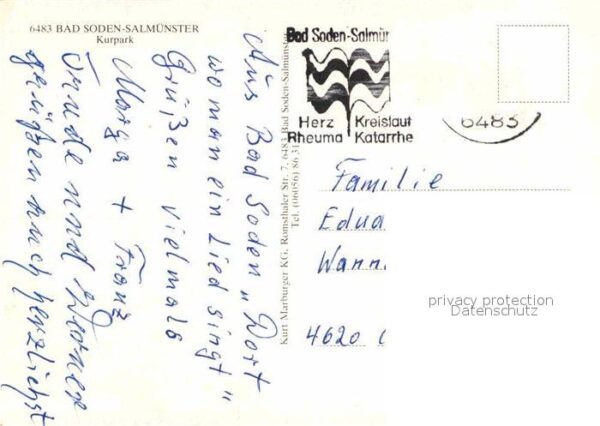 6483 BAD SODEN-SALMÜNSTER
Kurpark
Aus Bad Soden „Dort
wo man ein Lied singt"
Grüßen vielmals
Marga + Franz
Trude und Werner
grüßen auch herzlichst
Kurt Marburger KG, Romsthaler Str. 7, 6483 Bad Soden-Salmünster
Tel. (06056) 8631
Bad Soden-Salmür
Herz Kreislauf
Rheuma Katarrhe
6483
Familie
Edua
Wann
4620
privacy protection
Datenschutz